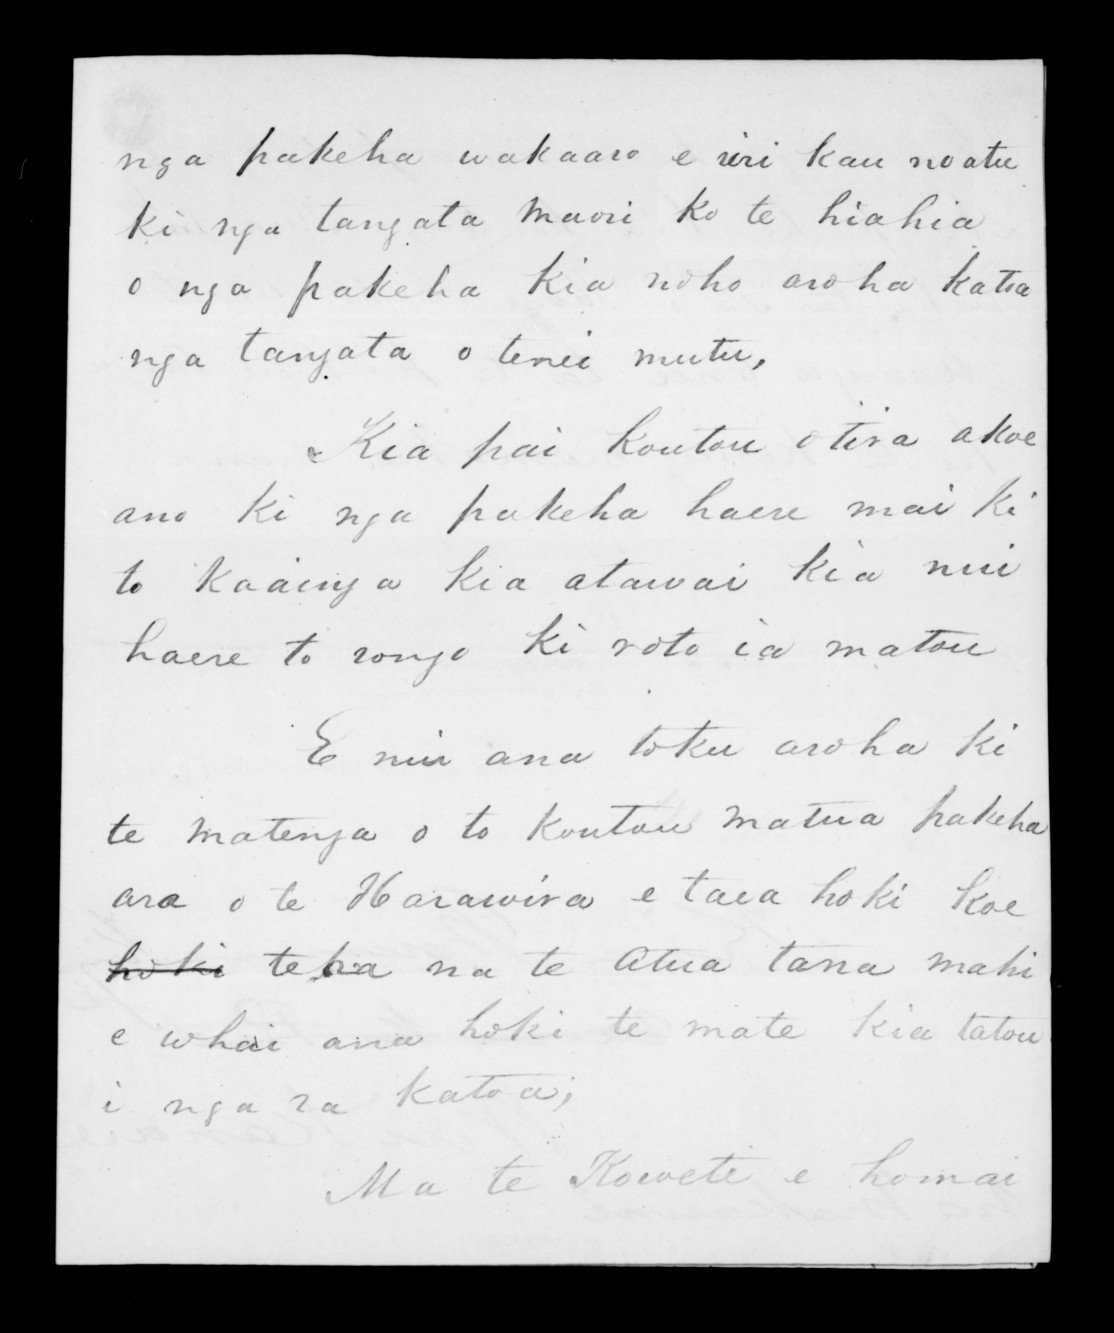 nga pakeha wakaaro e riri kau noatu
ki nga tangata maori ko te hiahia
o nga pakeha kia noho aroha katoa
nga tangata o tenei mutu,
Kia pai koutou otira akoe
ano ki nga pakeha haere mai ki
to kaainga kia atawai kia nui
haere to rongo ki roto ia matou
E nui ana toku aroha ki
te matenga o to koutou matua pakeha
ara o te Harawira e taea hoki koe
hoki te na te Atua tana mahi
e whai ana hoki te mate kia tatou
i nga ra katoa;
Ma te Kowete e homai